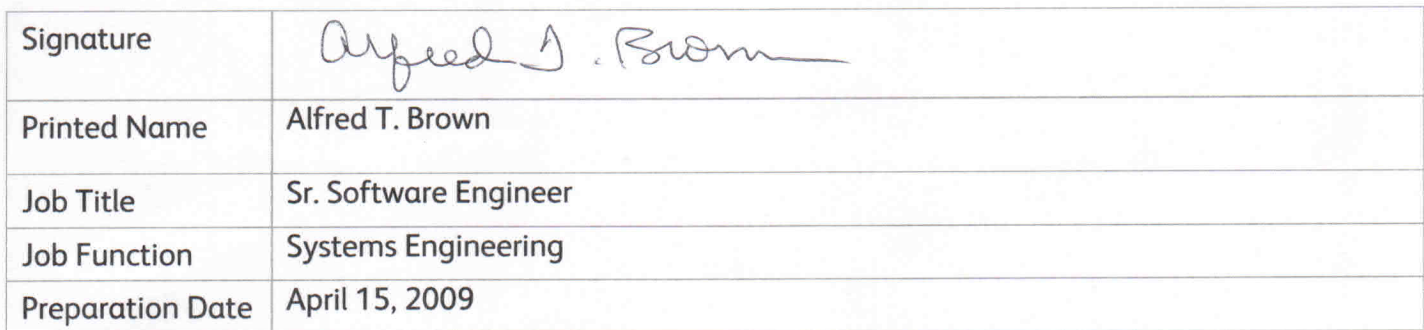 Signature Alfred T. Brown
Printed Name Alfred T. Brown
Job Title Sr. Software Engineer
Job Function Systems Engineering
Preparation Date April 15, 2009